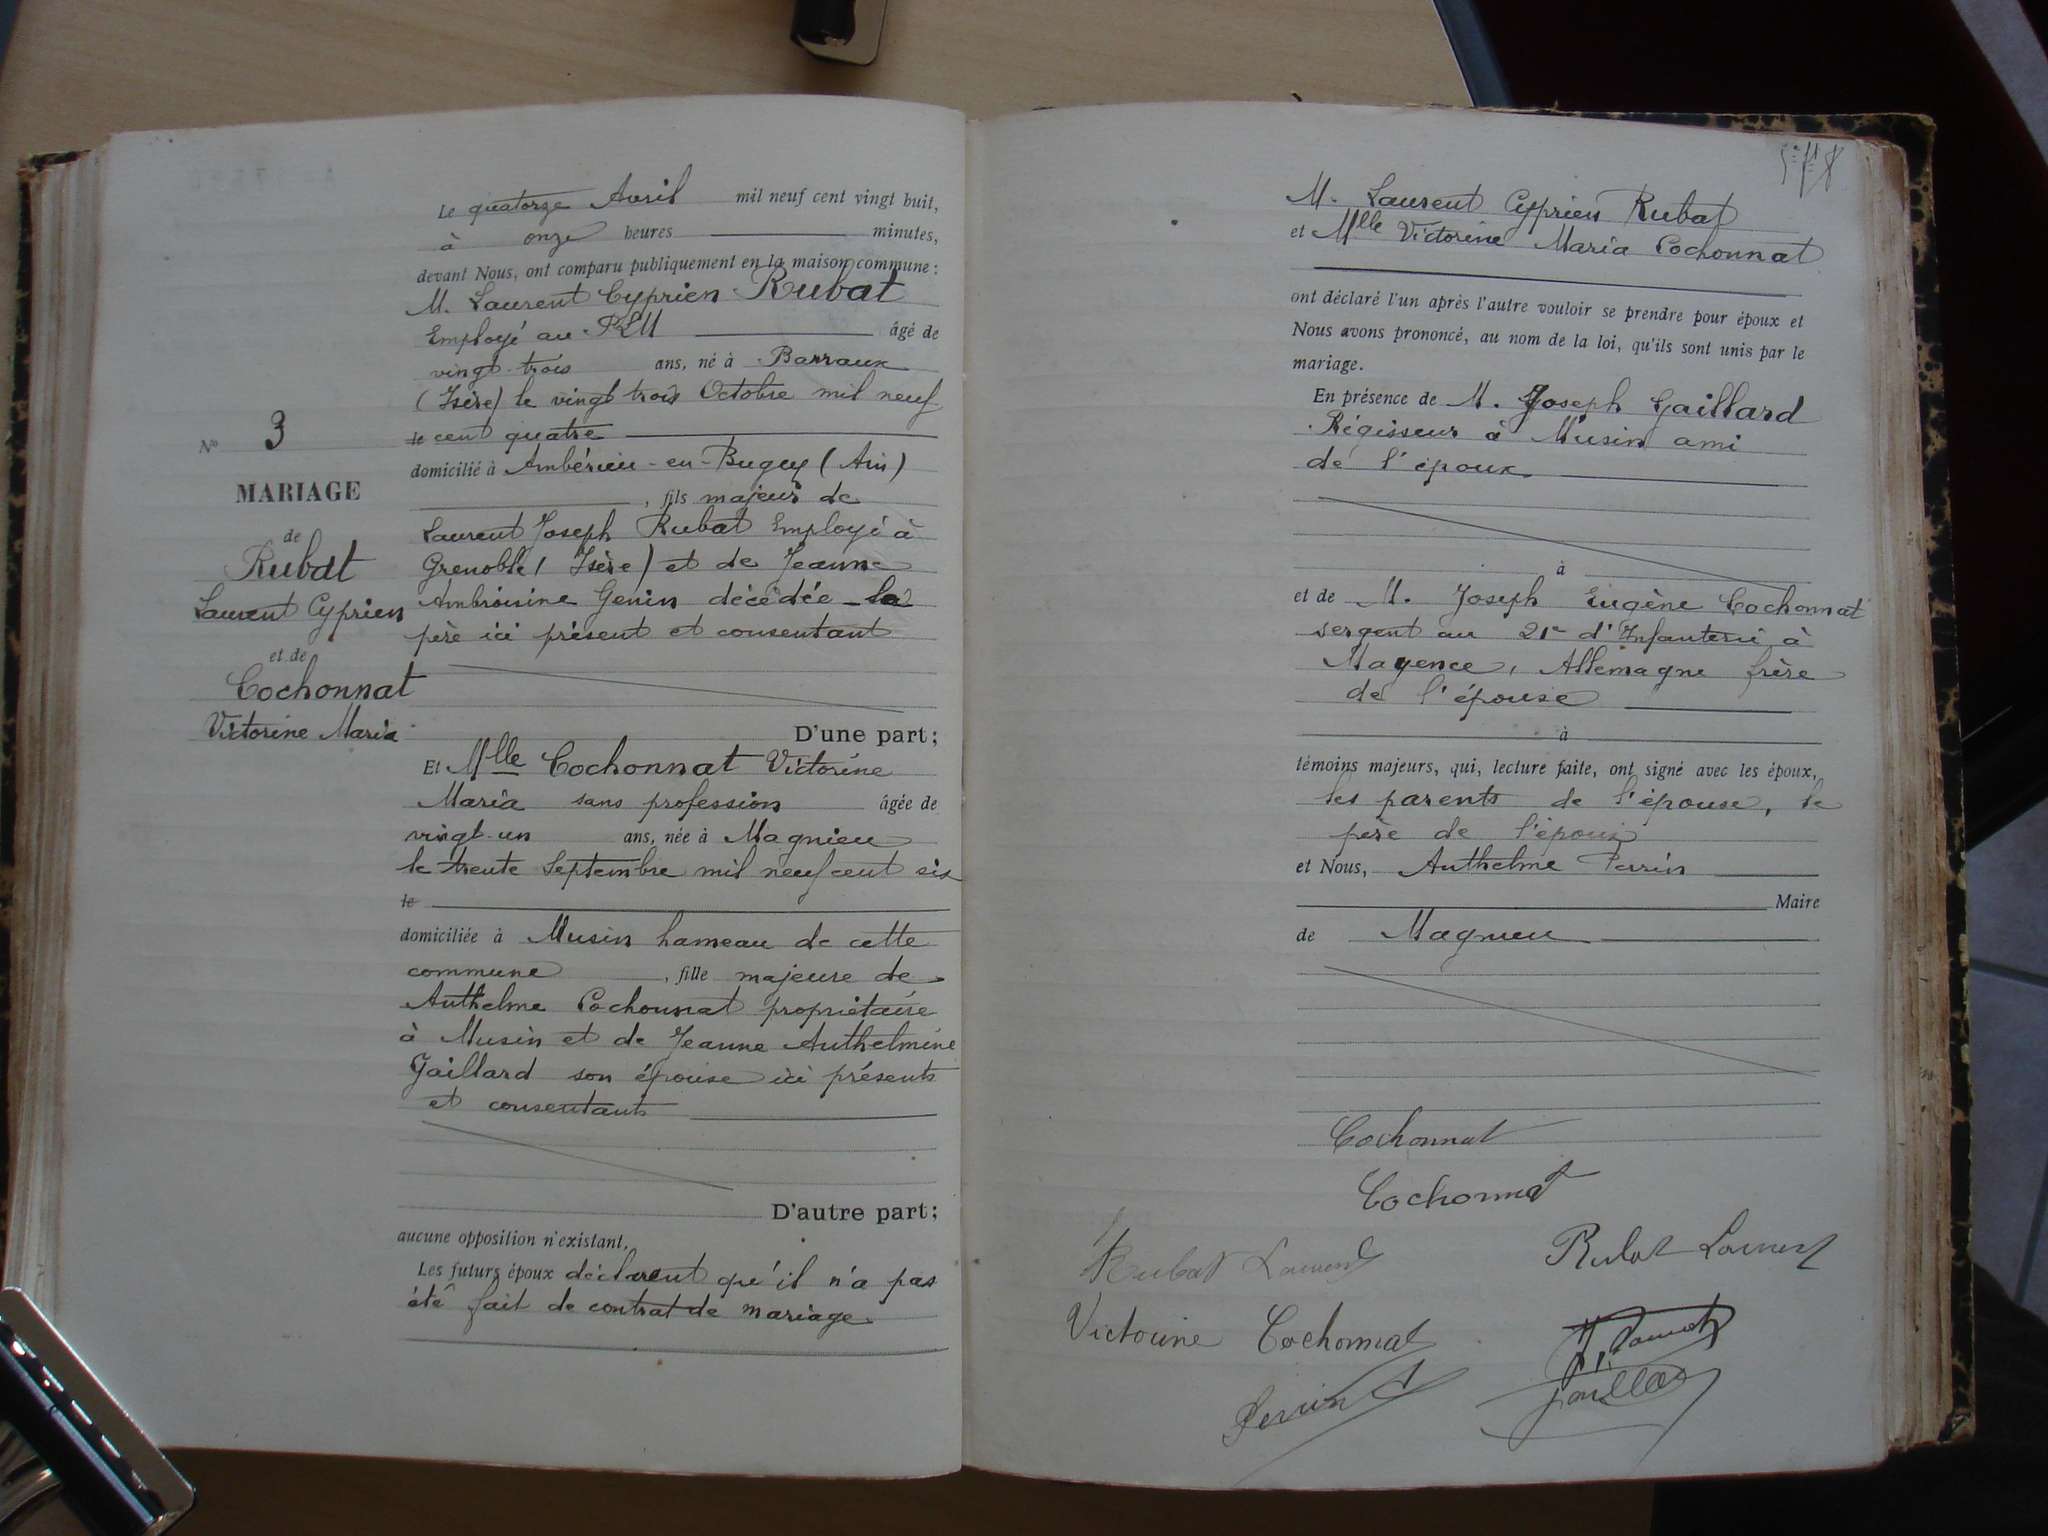 Le quatorze Avril mil neuf cent vingt huit,
à onze heures minutes,
devant Nous, ont comparu publiquement en la maison commune :
M. Laurent Cyprien Rubat
Employé au PLM âgé de
vingt-trois ans, né à Barraux
(Isère) le vingt trois Octobre mil neuf
le cent quatre
domicilié à Ambérieu-en-Bugey (Ain)
, fils majeur de
Laurent Joseph Rubat Employé à
Grenoble (Isère) et de Jeanne
Ambroisine Genin décédée le
père ici présent et consentant
D'une part;
Et Mlle Cochonnat Victorine
Maria sans profession âgée de
vingt-un ans, née à Magnieu
le trente Septembre mil neuf cent six
le
domiciliée à Musin hameau de cette
commune , fille majeure de
Anthelme Cochonnat propriétaire
à Musin et de Jeanne Anthelmine
Gaillard son épouse ici présents
et consentants
D'autre part;
aucune opposition n'existant,
Les futurs époux déclarent qu'il n'a pas
été fait de contrat de mariage
No 3
MARIAGE
de
Rubat
Laurent Cyprien
et de
Cochonnat
Victorine Maria
M. Laurent Cyprien Rubat
et Mlle Victorine Maria Cochonnat
ont déclaré l'un après l'autre vouloir se prendre pour époux et
Nous avons prononcé, au nom de la loi, qu'ils sont unis par le
mariage.
En présence de M. Joseph Gaillard
Régisseur à Musin ami
de l'époux
à
et de M. Joseph Eugène Cochonnat
sergent au 21e d'Infanterie à
Mayence, Allemagne frère
de l'épouse
à
témoins majeurs, qui, lecture faite, ont signé avec les époux,
les parents de l'épouse, le
père de l'époux
et Nous, Anthelme Perrin
Maire
de Magnieu
Cochonnat
Cochonnat
Rubat Laurent
Rubat Laurent
Victorine Cochonnat
Gaillard
Perrin A